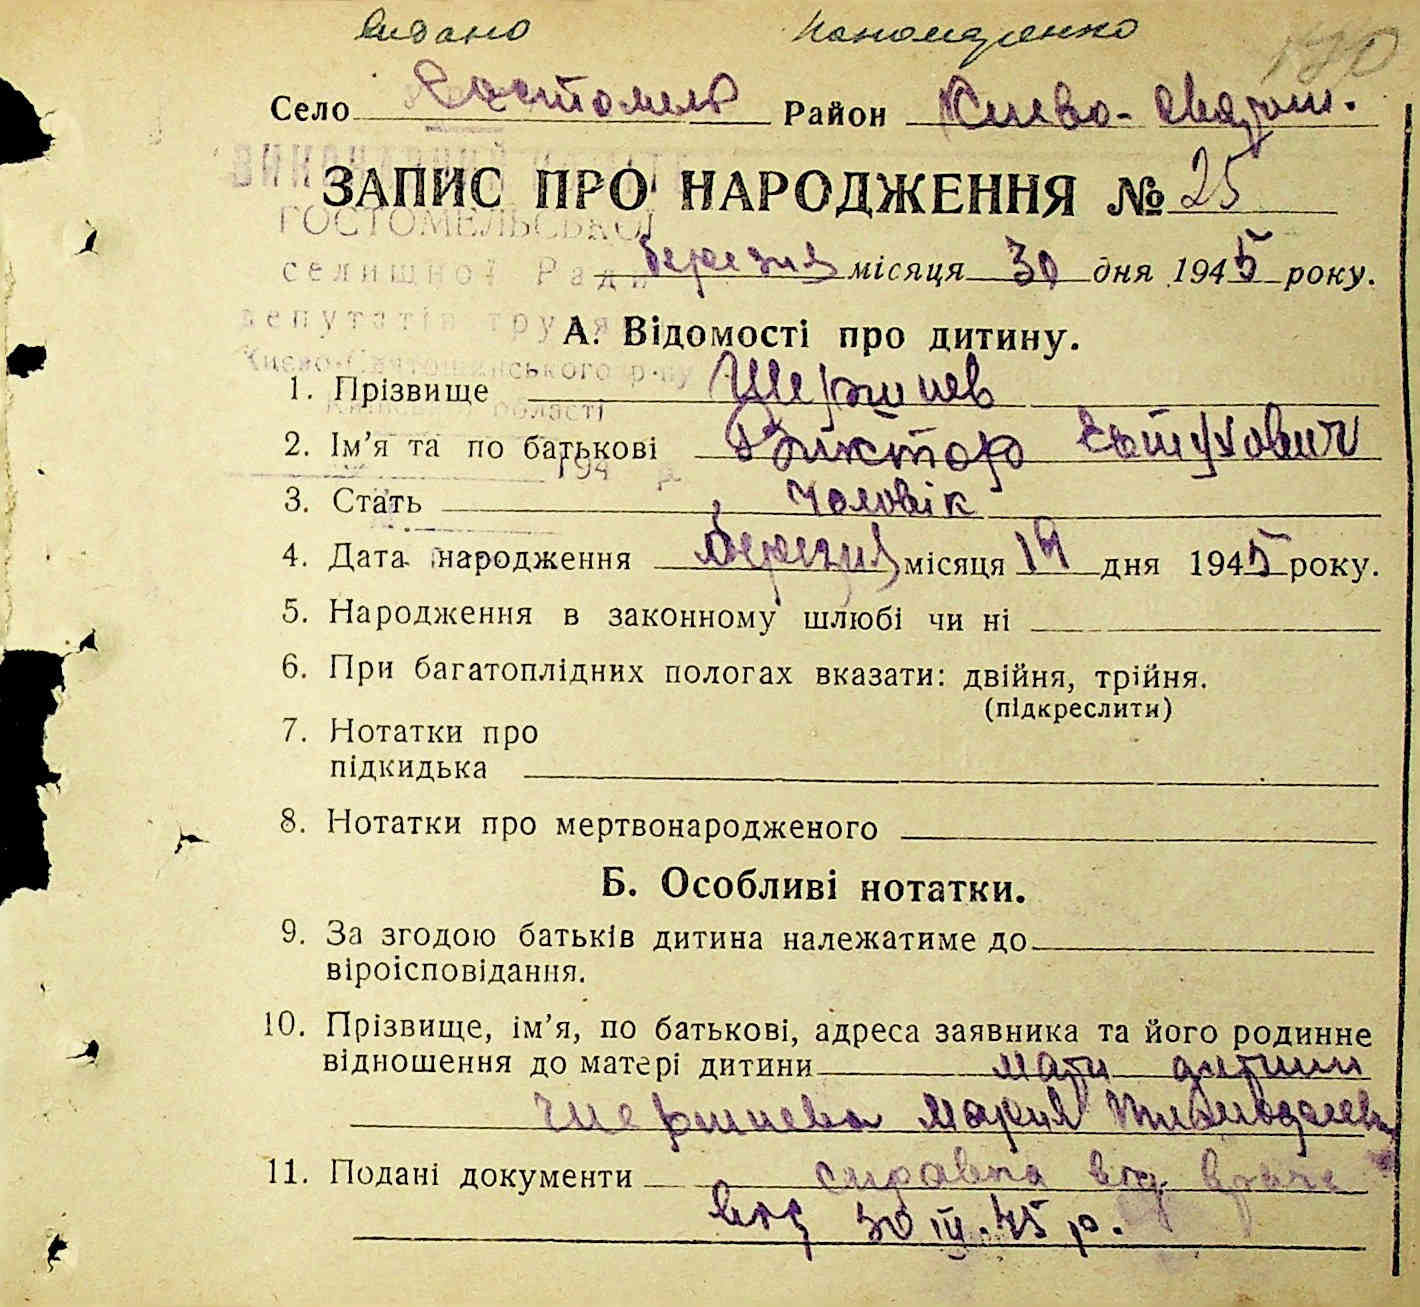 Видано Пономаренко
170
Село Гостомель Район Києво-Святош.
ЗАПИС ПРО НАРОДЖЕННЯ № 25
ГОСТОМЕЛЬСЬКОЇ
селищної Ради
березня місяця 30 дня 1945 року.
депутатів трудя
А. Відомості про дитину.
Києво-Святошинського р-ну
1. Прізвище
області
2. Ім’я та по батькові Виктор
194 р.
3. Стать чоловік
4. Дата народження березня місяця 19 дня 1945 року.
5. Народження в законному шлюбі чи ні
6. При багатоплідних пологах вказати: двійня, трійня.
(підкреслити)
7. Нотатки про
підкидька
8. Нотатки про мертвонародженого
Б. Особливі нотатки.
9. За згодою батьків дитина належатиме до
віроісповідання.
10. Прізвище, ім’я, по батькові, адреса заявника та його родинне
відношення до матері дитини мати дитини
Мария
11. Подані документи справка від врача
від 30 III. 45 р.